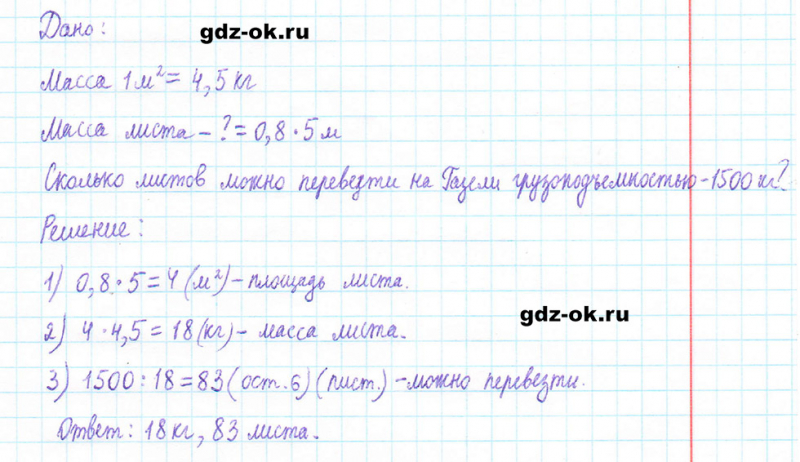 Дано:
gdz-ok.ru
Масса 1 м² = 4,5 кг
Масса листа - ? = 0,8 · 5 м
Сколько листов можно перевезти на Газели грузоподъемностью - 1500 кг?
Решение:
1) 0,8 · 5 = 4 (м²) - площадь листа.
gdz-ok.ru
2) 4 · 4,5 = 18 (кг) - масса листа.
3) 1500 : 18 = 83 (ост. 6) (лист.) - можно перевезти.
Ответ: 18 кг, 83 листа.